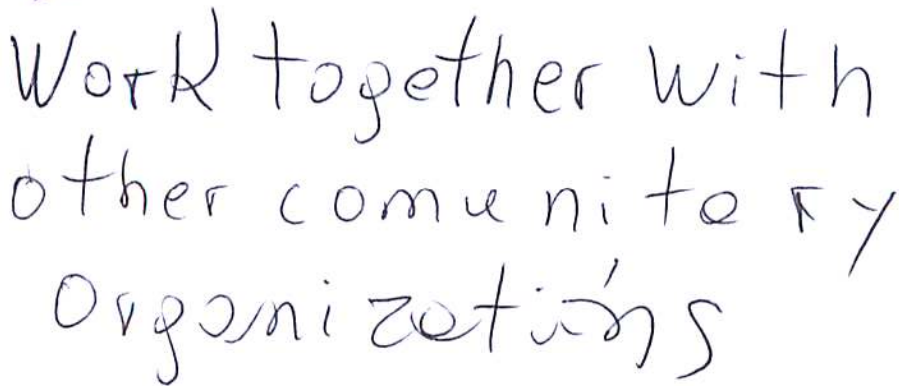 Work together with
other comunitary
Organizatións